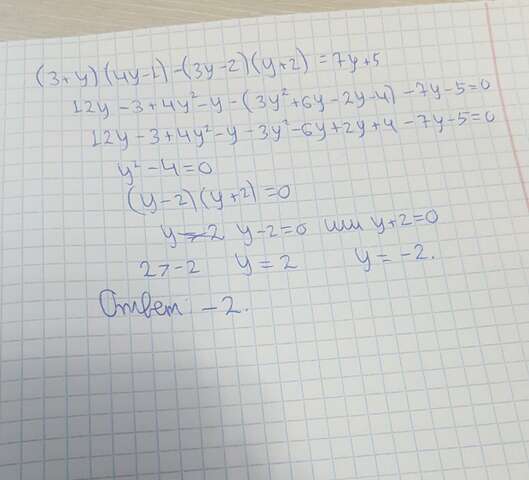 (3+y)(4y-1)-(3y-2)(y+2)=7y+5
12y-3+4y²-y-(3y²+6y-2y-4)-7y-5=0
12y-3+4y²-y-3y²-6y+2y+4-7y-5=0
y²-4=0
(y-2)(y+2)=0
y-2=0 или y+2=0
2>-2 y=2 y=-2.
Ответ: -2.